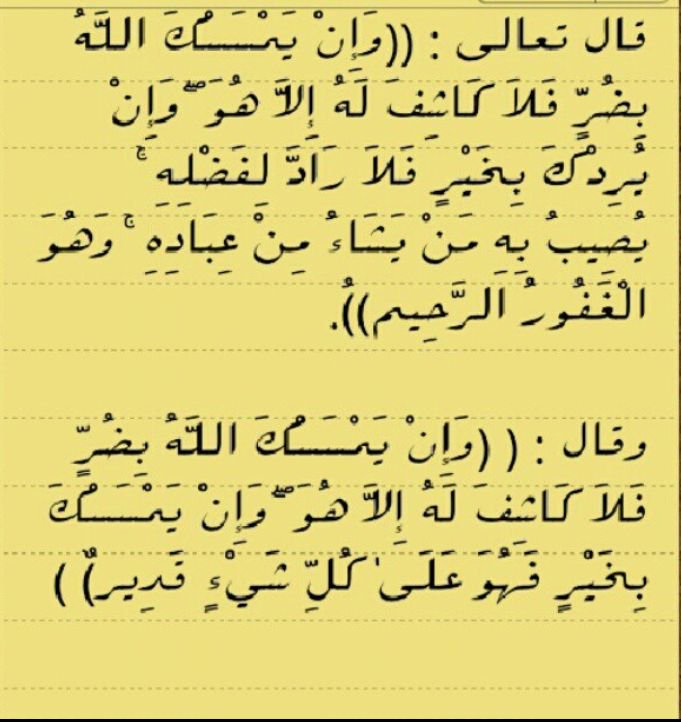 قال تعالى : ((وَإِنْ يَمْسَسْكَ اللَّهُ
بِضُرٍّ فَلاَ كَاشِفَ لَهُ إِلاَّ هُوَ ۖ وَإِنْ
يُرِدْكَ بِخَيْرٍ فَلاَ رَادَّ لِفَضْلِهِ ۚ
يُصِيبُ بِهِ مَنْ يَشَاءُ مِنْ عِبَادِهِ ۚ وَهُوَ
الْغَفُورُ الرَّحِيمُ)).
وقال : ( (وَإِنْ يَمْسَسْكَ اللَّهُ بِضُرٍّ
فَلاَ كَاشِفَ لَهُ إِلاَّ هُوَ ۖ وَإِنْ يَمْسَسْكَ
بِخَيْرٍ فَهُوَ عَلَىٰ كُلِّ شَيْءٍ قَدِيرٌ) )